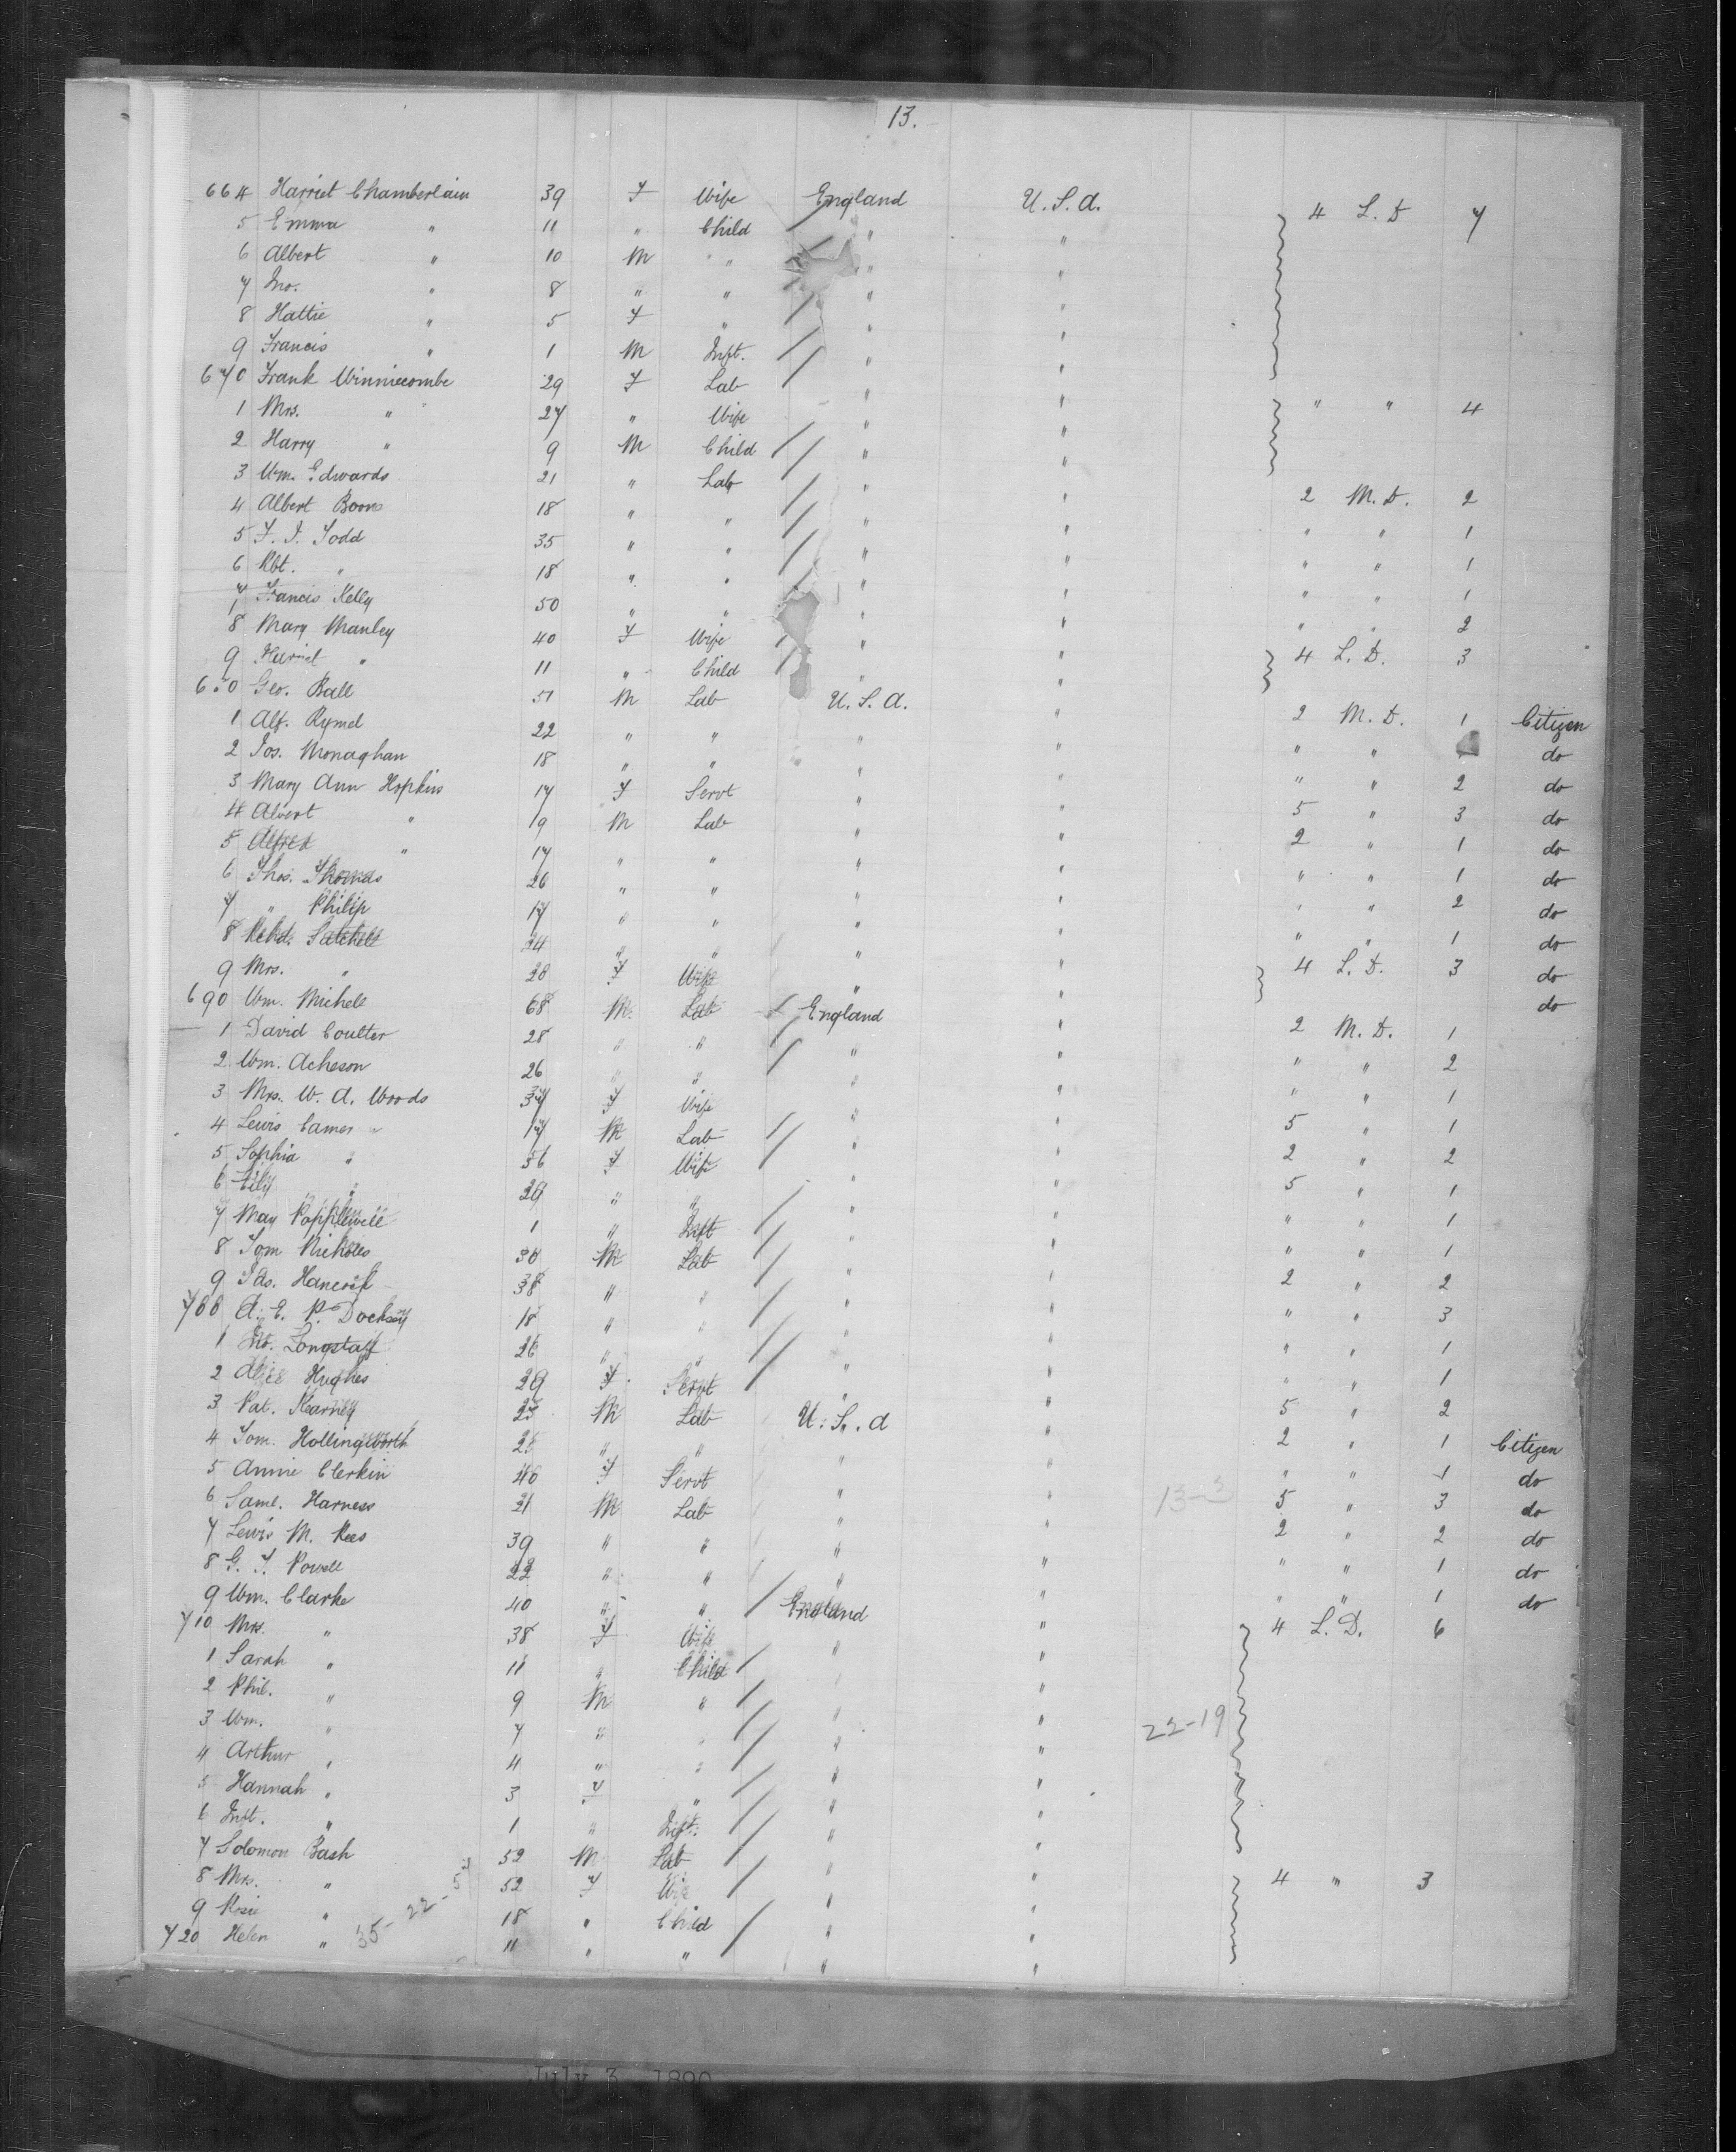 13.
664 Harriet Chamberlain 39 F Wife England U.S.A. 4 L.D 7
5 Emma " 11 " Child " "
6 Albert " 10 M " " "
7 Jno. " 8 " " " "
8 Hattie " 5 F " " "
9 Francis " 1 M Inft. " "
670 Frank Winniecombe 29 F Lab " " " " 4
1 Mrs. " 27 " Wife " "
2 Harry " 9 M Child " "
3 Wm. Edwards 21 " Lab " " 2 M.D. 2
4 Albert 18 " " " " " " 1
5 F. J. Todd 35 " " " " " " 1
6 Rbt. " 18 " " " " " " 1
7 Francis Kelly 50 " " " " " " 2
8 Mary Manley 40 F Wife " " 4 L.D. 3
9 Harriet " 11 " Child " "
680 Geo. Ball 51 M Lab U.S.A. " 2 M.D. 1 Citizen
1 Alf. Rymel 22 " " " " " " do
2 Jos. Monaghan 18 " " " " " " 2 do
3 Mary Ann Hopkins 17 F Servt " " 5 " 3 do
4 Albert " 19 M Lab " " 2 " 1 do
5 Alfred " 17 " " " " " " 1 do
6 Thos. Thomas 26 " " " " " " 2 do
7 " Philip 17 " " " " " " 1 do
8 Richd. Satchell 24 " " " " 4 L.D. 3 do
9 Mrs. " 28 F Wife " " do
690 Wm. Michell 68 M. Lab England " 2 M.D. 1
1 David Coulter 28 " " " " " " 2
2 Wm. Acheson 26 " " " " " " 1
3 Mrs. W. A. Woods 37 F Wife " " 5 " 1
4 Lewis Camer " 17 M Lab " " 2 " 2
5 Sophia " 56 F Wife " " 5 " 1
6 Lily " 29 " " " " " " 1
7 May Popplewell 1 " Inft " " " " 1
8 Tom Nicholls 30 M Lab " " 2 " 2
9 Jas. 38 " " " " " " 3
700 A. E. P. 18 " " " " " " 1
1 Jno. Longstaff 26 " " " " " " 1
2 Alice Hughes 29 F Servt " " 5 " 2
3 Pat. Kearney 25 M Lab U.S.A " 2 " 1 Citizen
4 Tom. Hollingworth 25 " " " " " " 1 do
5 Annie Clerkin 40 F Servt " " 13-3 5 " 3 do
6 Saml. Harness 21 M Lab " " 2 " 2 do
7 Lewis M. Rees 39 " " " " " " 1 do
8 G. F. Powell 22 " " " " " " 1 do
9 Wm. Clarke 40 " " England " 4 L.D. 6
710 Mrs. " 38 F Wife " "
1 Sarah " 11 " Child " "
2 Phil. " 9 M " " "
3 Wm. " 7 " " " " 22-19
4 Arthur " 4 " " " "
5 Hannah " 3 F " " "
6 Inft. " 1 " Inft. " "
7 Solomon Bash 52 M Lab " " 4 " 3
8 Mrs. " 52 F Wife " "
9 Rosie " 18 " Child " "
720 Helen " 35-22-5 11 " " " "
July 3, 1890